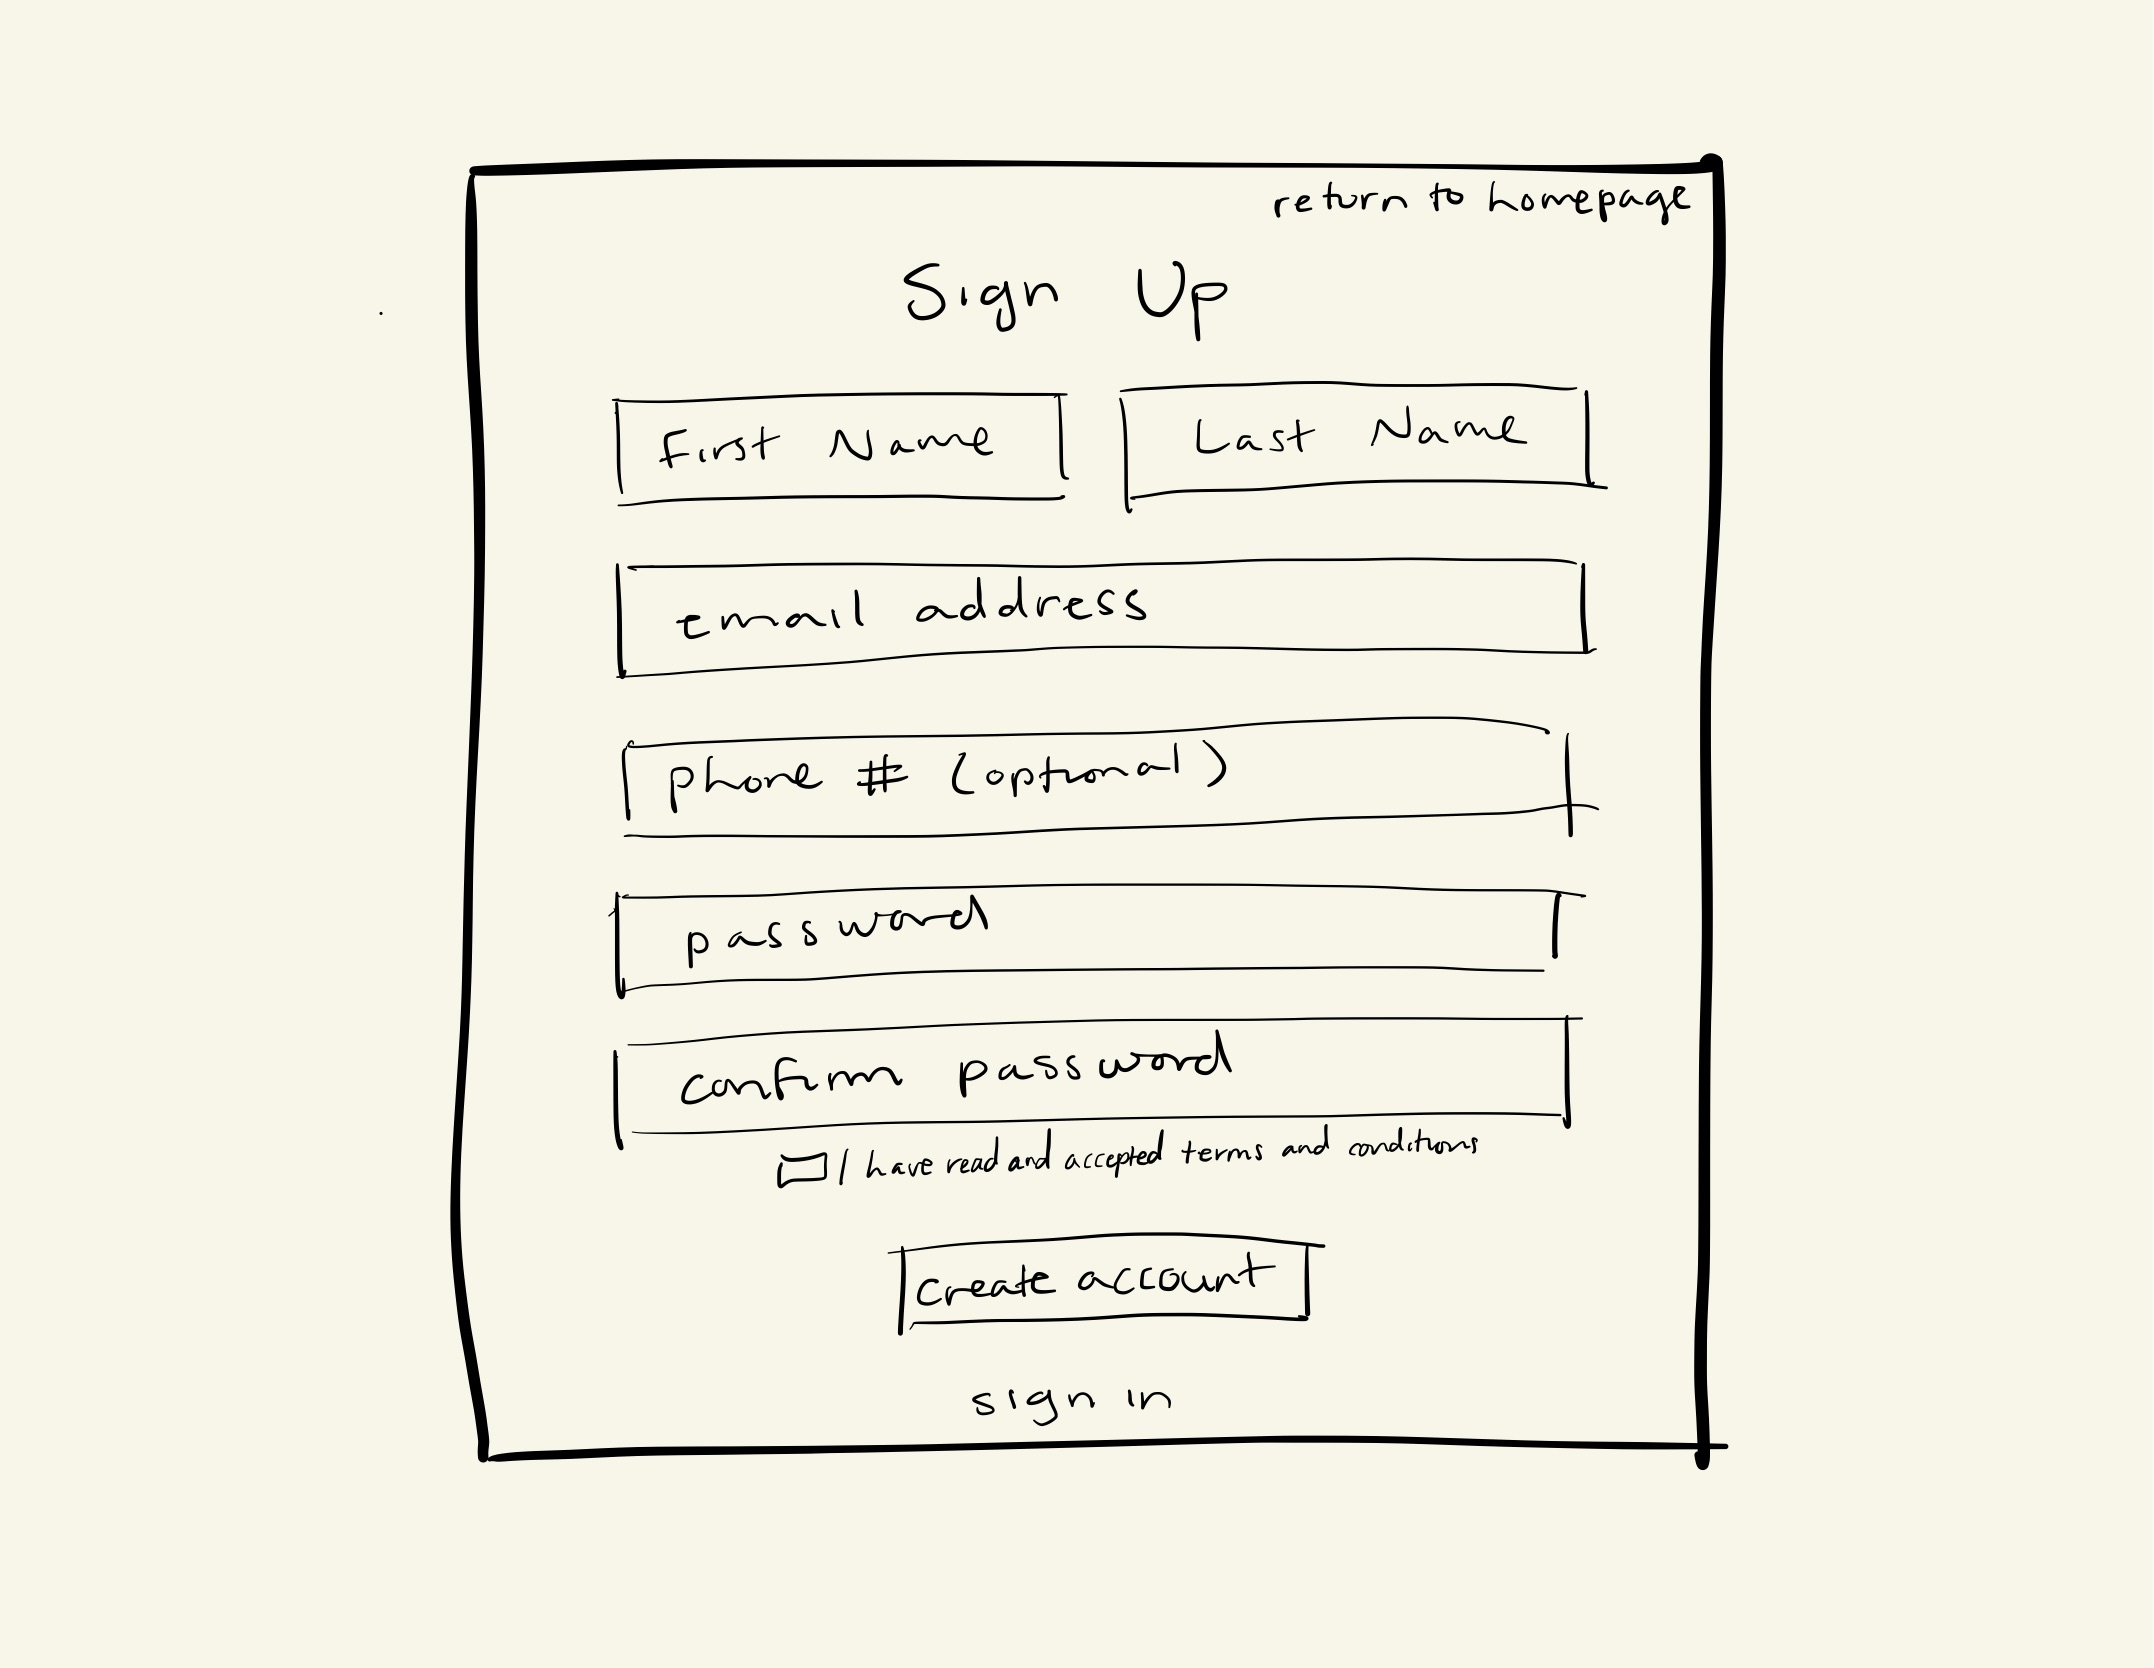 return to homepage
Sign Up
First Name
Last Name
email address
phone # (optional)
password
confirm password
I have read and accepted terms and conditions
create account
sign in